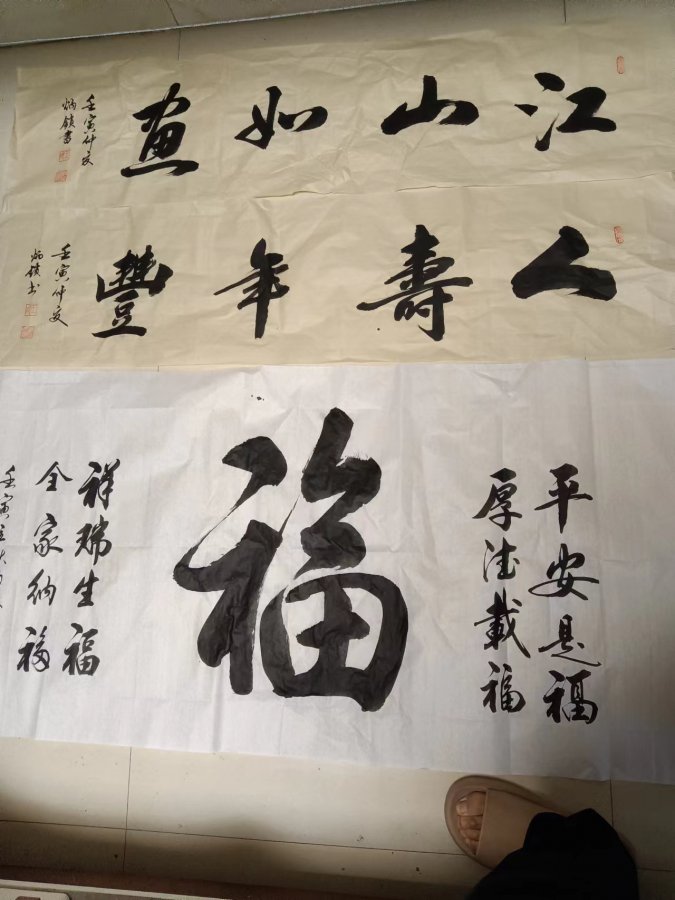 江山如画
壬寅仲夏
炳锁書
人壽年豐
壬寅仲夏
炳锁书
平安是福
厚德載福
福
祥瑞生福
全家納福
壬寅